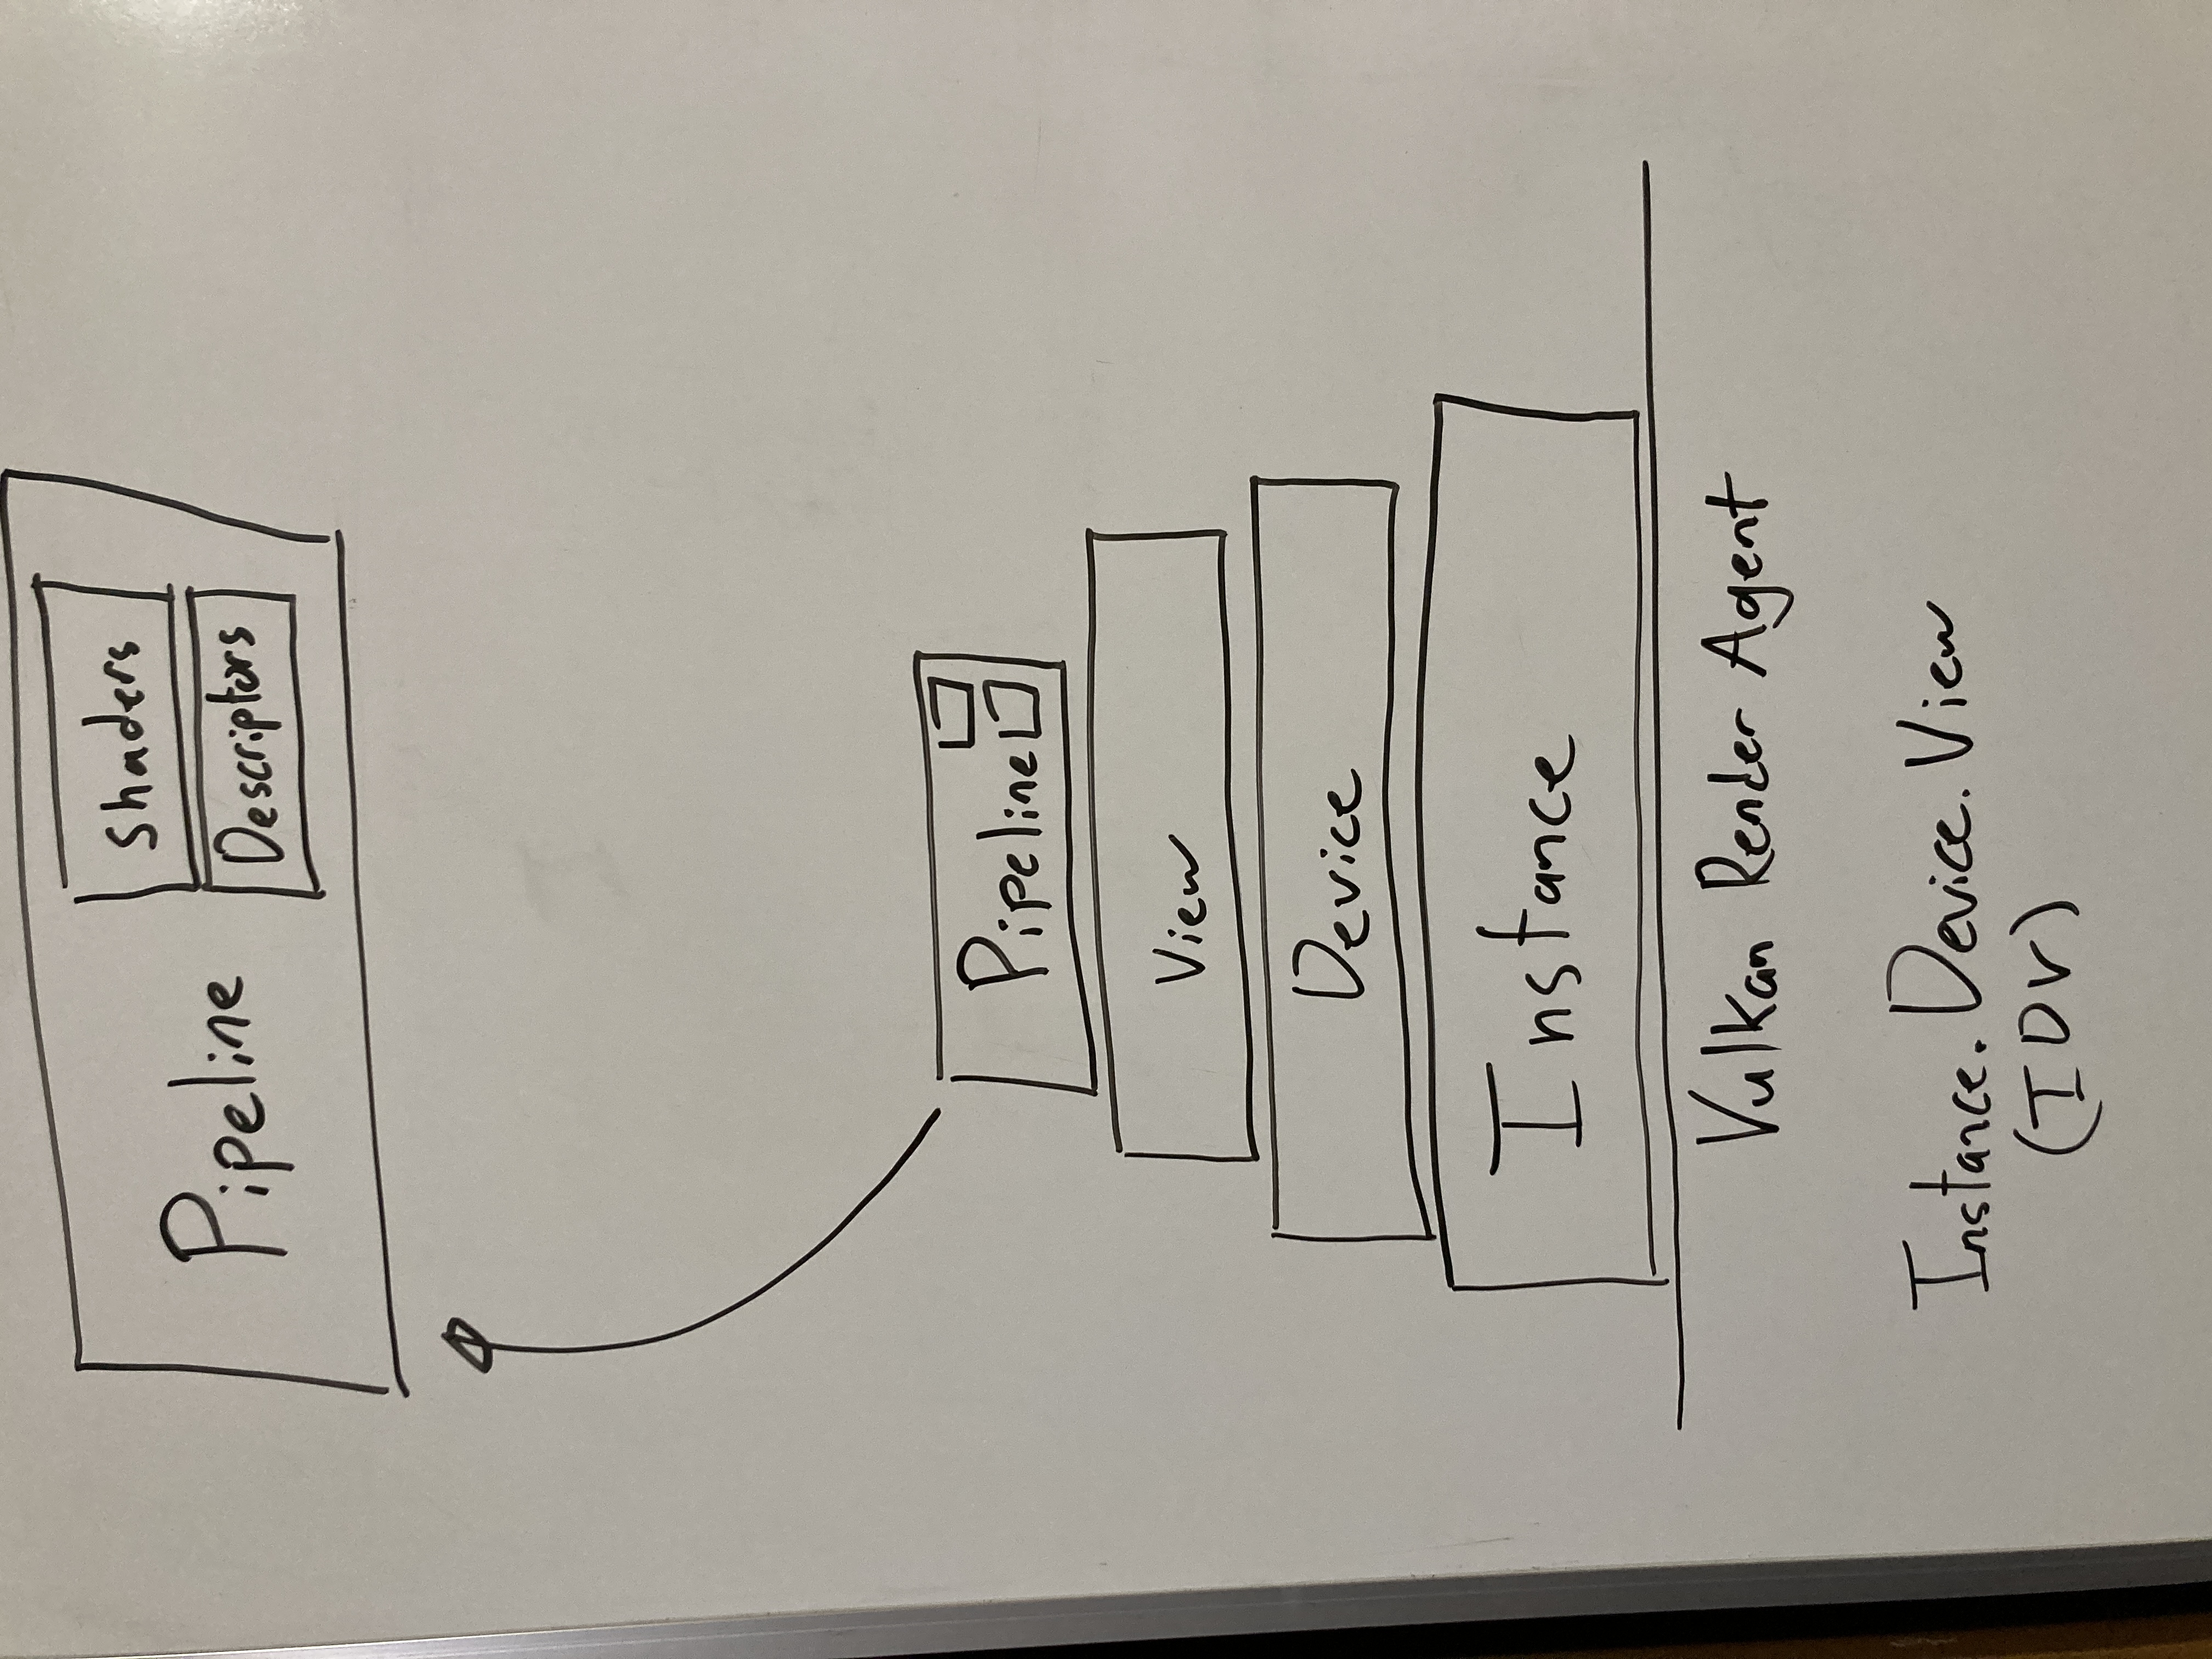 Shaders
Pipeline
Descriptors
Pipeline
View
Device
Instance
Vulkan Render Agent
Instance. Device. View
(IDV)